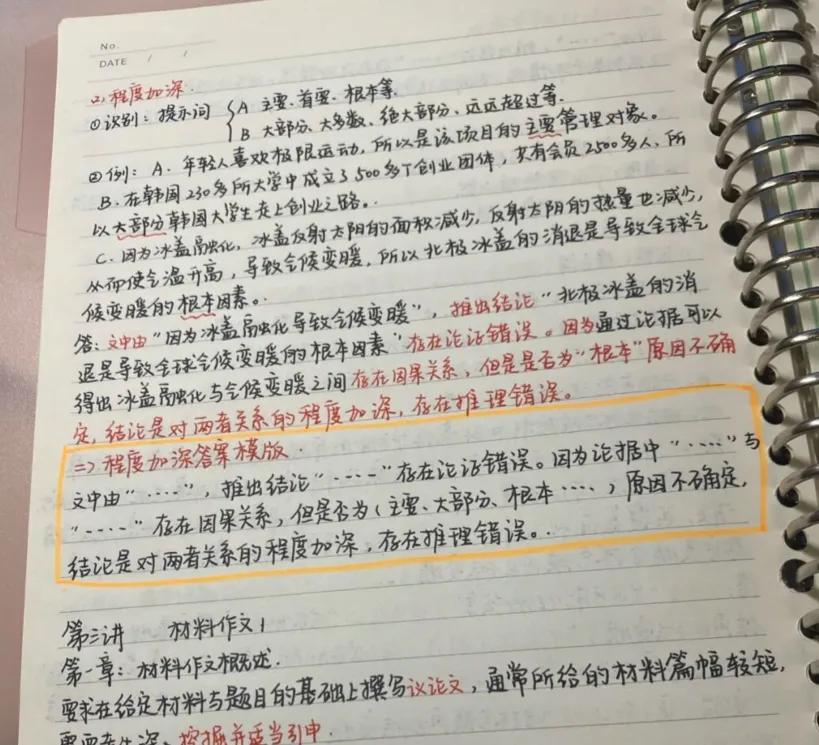 No.
DATE / /
(2) 程度加深.
①识别: 提示词 { A 主要、首要、根本等.
B 大部分、大多数、绝大部分、远远超过等.
②例: A. 年轻人喜欢极限运动, 所以是该项目的主要管理对象。
B. 在韩国230多所大学中成立了500多个创业团体, 共有会员2500多人, 所
以大部分韩国大学生走上创业之路。
C. 因为冰盖融化, 冰盖反射太阳的面积减少, 反射太阳的热量也减少,
从而使气温升高, 导致气候变暖, 所以北极冰盖的消退是导致全球气
候变暖的根本因素。
答: 文中由“因为冰盖融化导致气候变暖”, 推出结论“北极冰盖的消
退是导致全球气候变暖的根本因素”存在论证错误。因为通过论据可以
得出冰盖融化与气候变暖之间存在因果关系, 但是是否为“根本”原因不确
定, 结论是对两者关系的程度加深, 存在推理错误。
=> 程度加深答案模版
文中由“....”, 推出结论“----”存在论证错误。因为论据中“....”与
“----”存在因果关系, 但是否为(主要、大部分、根本....)原因不确定,
结论是对两者关系的程度加深, 存在推理错误。
第三讲 材料作文1
第一章: 材料作文概述.
要求在给定材料与题目的基础上撰写议论文, 通常所给的材料篇幅较短,
需要考生深、挖掘并适当引申.